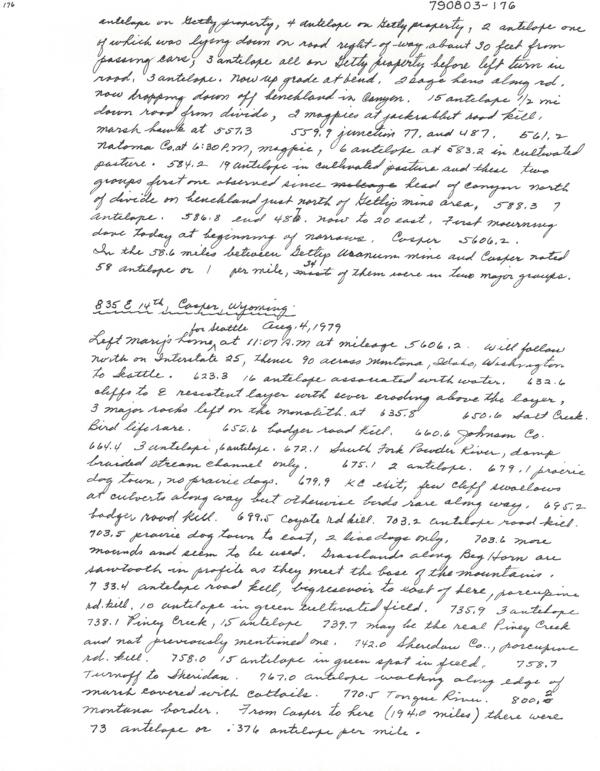 176
790803-176
antelope on Getty property, 4 antelope on Getty property, 2 antelope one
of which was lying down on road right-of-way about 30 feet from
passing cars, 3 antelope all on Getty property before left turn in
road, 3 antelope. Now up grade at bend. 2 sage hens along rd.
now dropping down off benchland in Canyon. 15 antelope 1/2 mi
down road from divide, 2 magpies at jackrabbit road kill.
marsh hawk at 557.3 559.9 junction 77, and 487. 561.2
Natoma Co. at 6:30 P.M, magpie, 6 antelope at 583.2 in cultivated
pasture. 584.2 19 antelope in cultivated pasture and these two
groups first one observed since head of canyon north
of divide on benchland just north of Gettys mine area, 588.3 7
antelope. 586.8 end 487. now to 20 east. First mourning
dove today at beginning of narrows. Casper 5606.2.
In the 58.6 miles between Gettys Uranium mine and Casper noted
58 antelope or 1 per mile, 34 of them were in two major groups.
835 E 14th, Casper, Wyoming.
for Seattle Aug. 4, 1979
Left Mary's home, at 11:07 A.M at mileage 5606.2. Will follow
north on Interstate 25, thence 90 across Montana, Idaho, Washington
to Seattle. 623.3 16 antelope associated with water. 632.6
cliffs to E resistent layer with sever eroding above the layer,
3 major rocks left on the monolith at 635.8 650.6 Salt Creek.
Bird life rare. 652.6 badger road kill. 660.6 Johnson Co.
664.4 3 antelope, 6 antelope. 672.1 South Fork Powder River, damp
braided stream channel only. 675.1 2 antelope. 679.1 prairie
dog town, no prairie dogs. 679.9 KC exit, few cliff swallows
at culverts along way but otherwise birds rare along way. 695.2
badger road kill. 699.5 coyote rd kill. 703.2 antelope road kill.
703.5 prairie dog town to east, 2 live dogs only. 703.6 more
mounds and seem to be used. Grasslands along Big Horn are
sawtooth in profile as they meet the base of the mountains.
733.4 antelope road kill, big resevoir to east of here, porcupine
rd. kill. 10 antelope in green cultivated field. 735.9 3 antelope
738.1 Piney Creek, 15 antelope 739.7 may be the real Piney Creek
and not previously mentioned one. 742.0 Sheridan Co., porcupine
rd. kill. 758.0 15 antelope in green spot in field. 758.7
Turnoff to Sheridan. 767.0 antelope walking along edge of
marsh covered with cattails. 770.5 Tongue River. 800.2
Montana border. From Casper to here (194.0 miles) there were
73 antelope or .376 antelope per mile.